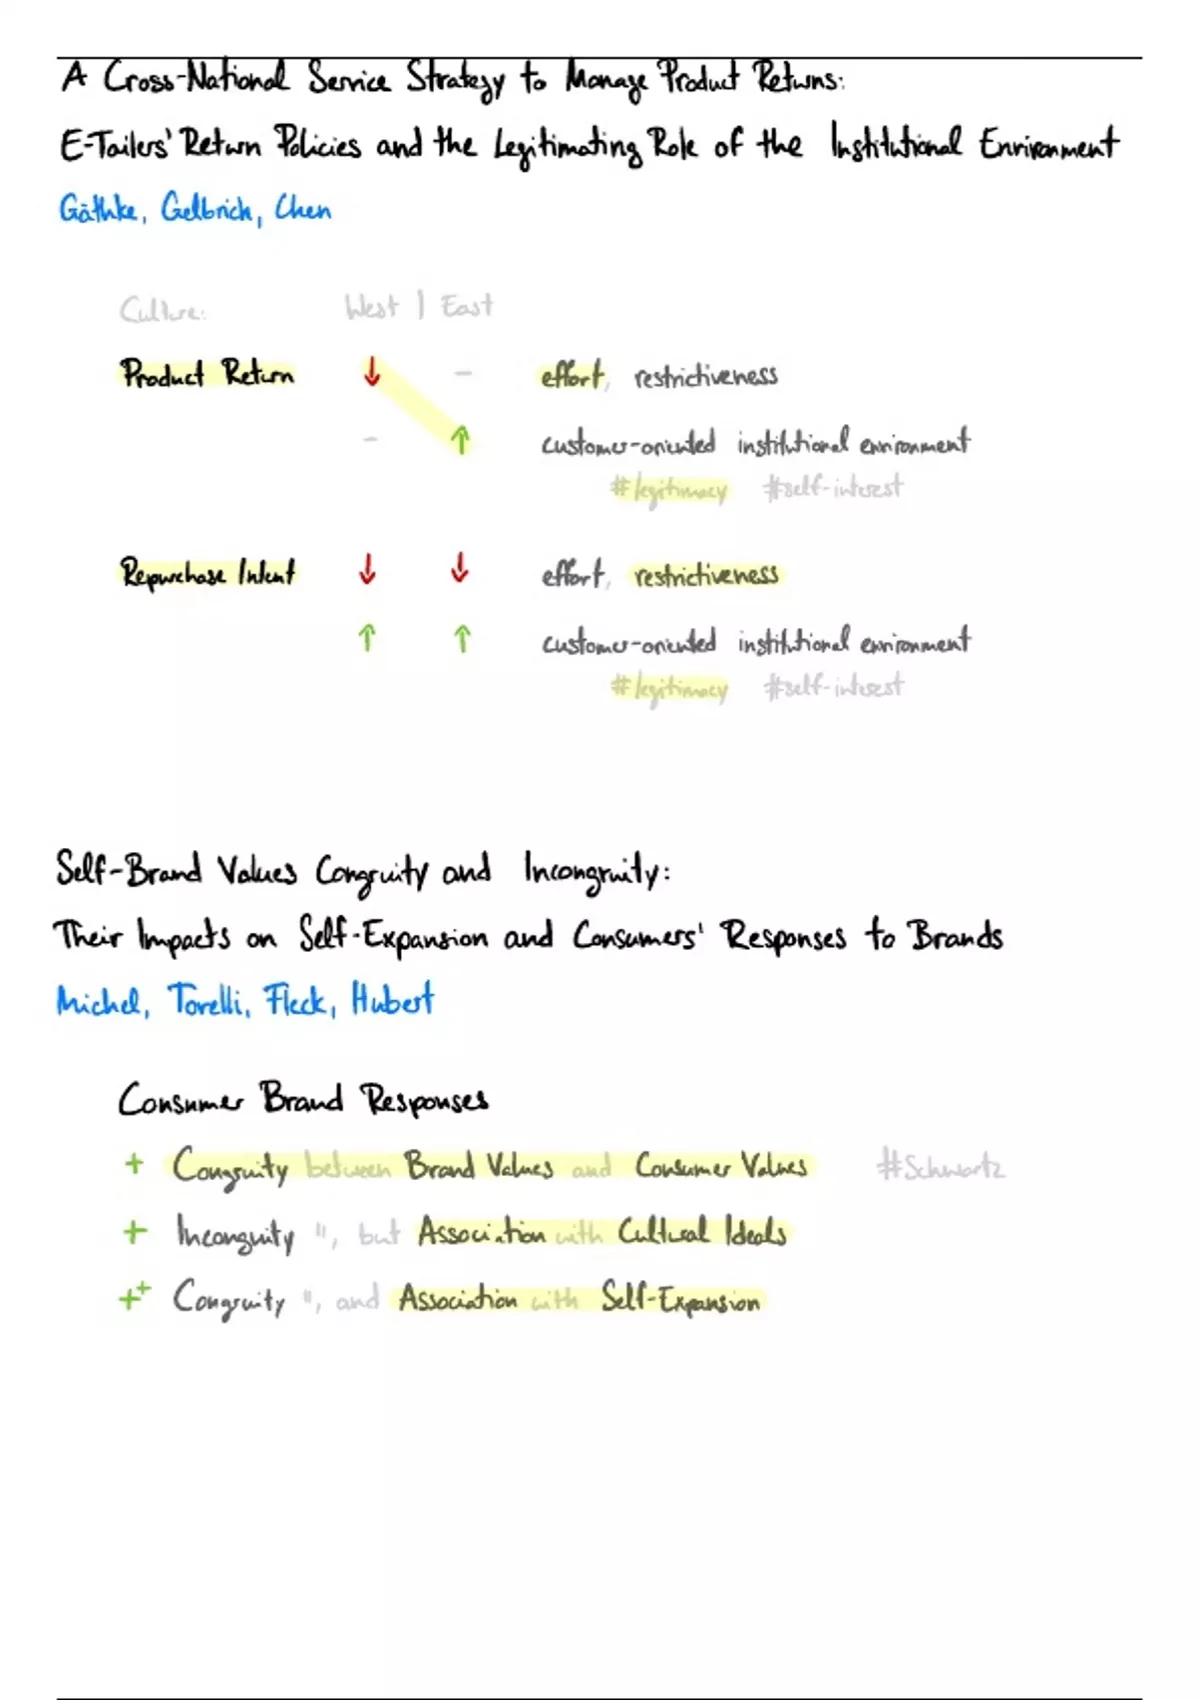 A Cross-National Service Strategy to Manage Product Returns:
E-Tailers' Return Policies and the Legitimating Role of the Institutional Environment
Gäthke, Gelbrich, Chen
Culture: West | East
Product Return ↓ – effort, restrictiveness
– ↑ customer-oriented institutional environment
#legitimacy #self-interest
Repurchase Intent ↓ ↓ effort, restrictiveness
↑ ↑ customer-oriented institutional environment
#legitimacy #self-interest
Self-Brand Values Congruity and Incongruity:
Their Impacts on Self-Expansion and Consumers' Responses to Brands
Michel, Torelli, Fleck, Hubert
Consumer Brand Responses
+ Congruity between Brand Values and Consumer Values #Schwartz
+ Incongruity ", but Association with Cultural Ideals
++ Congruity ", and Association with Self-Expansion